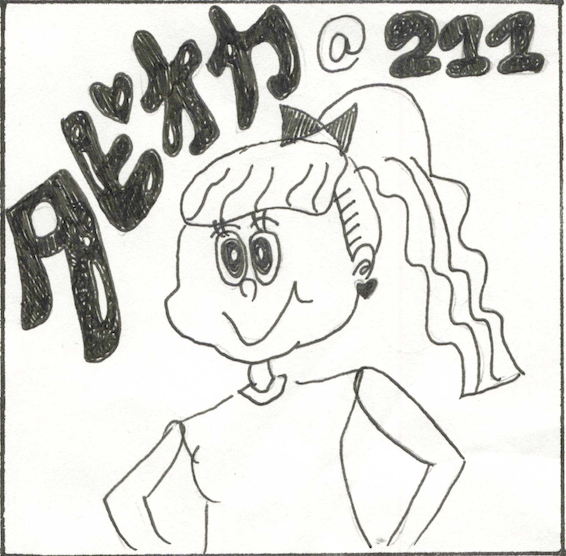 タピオカ@211